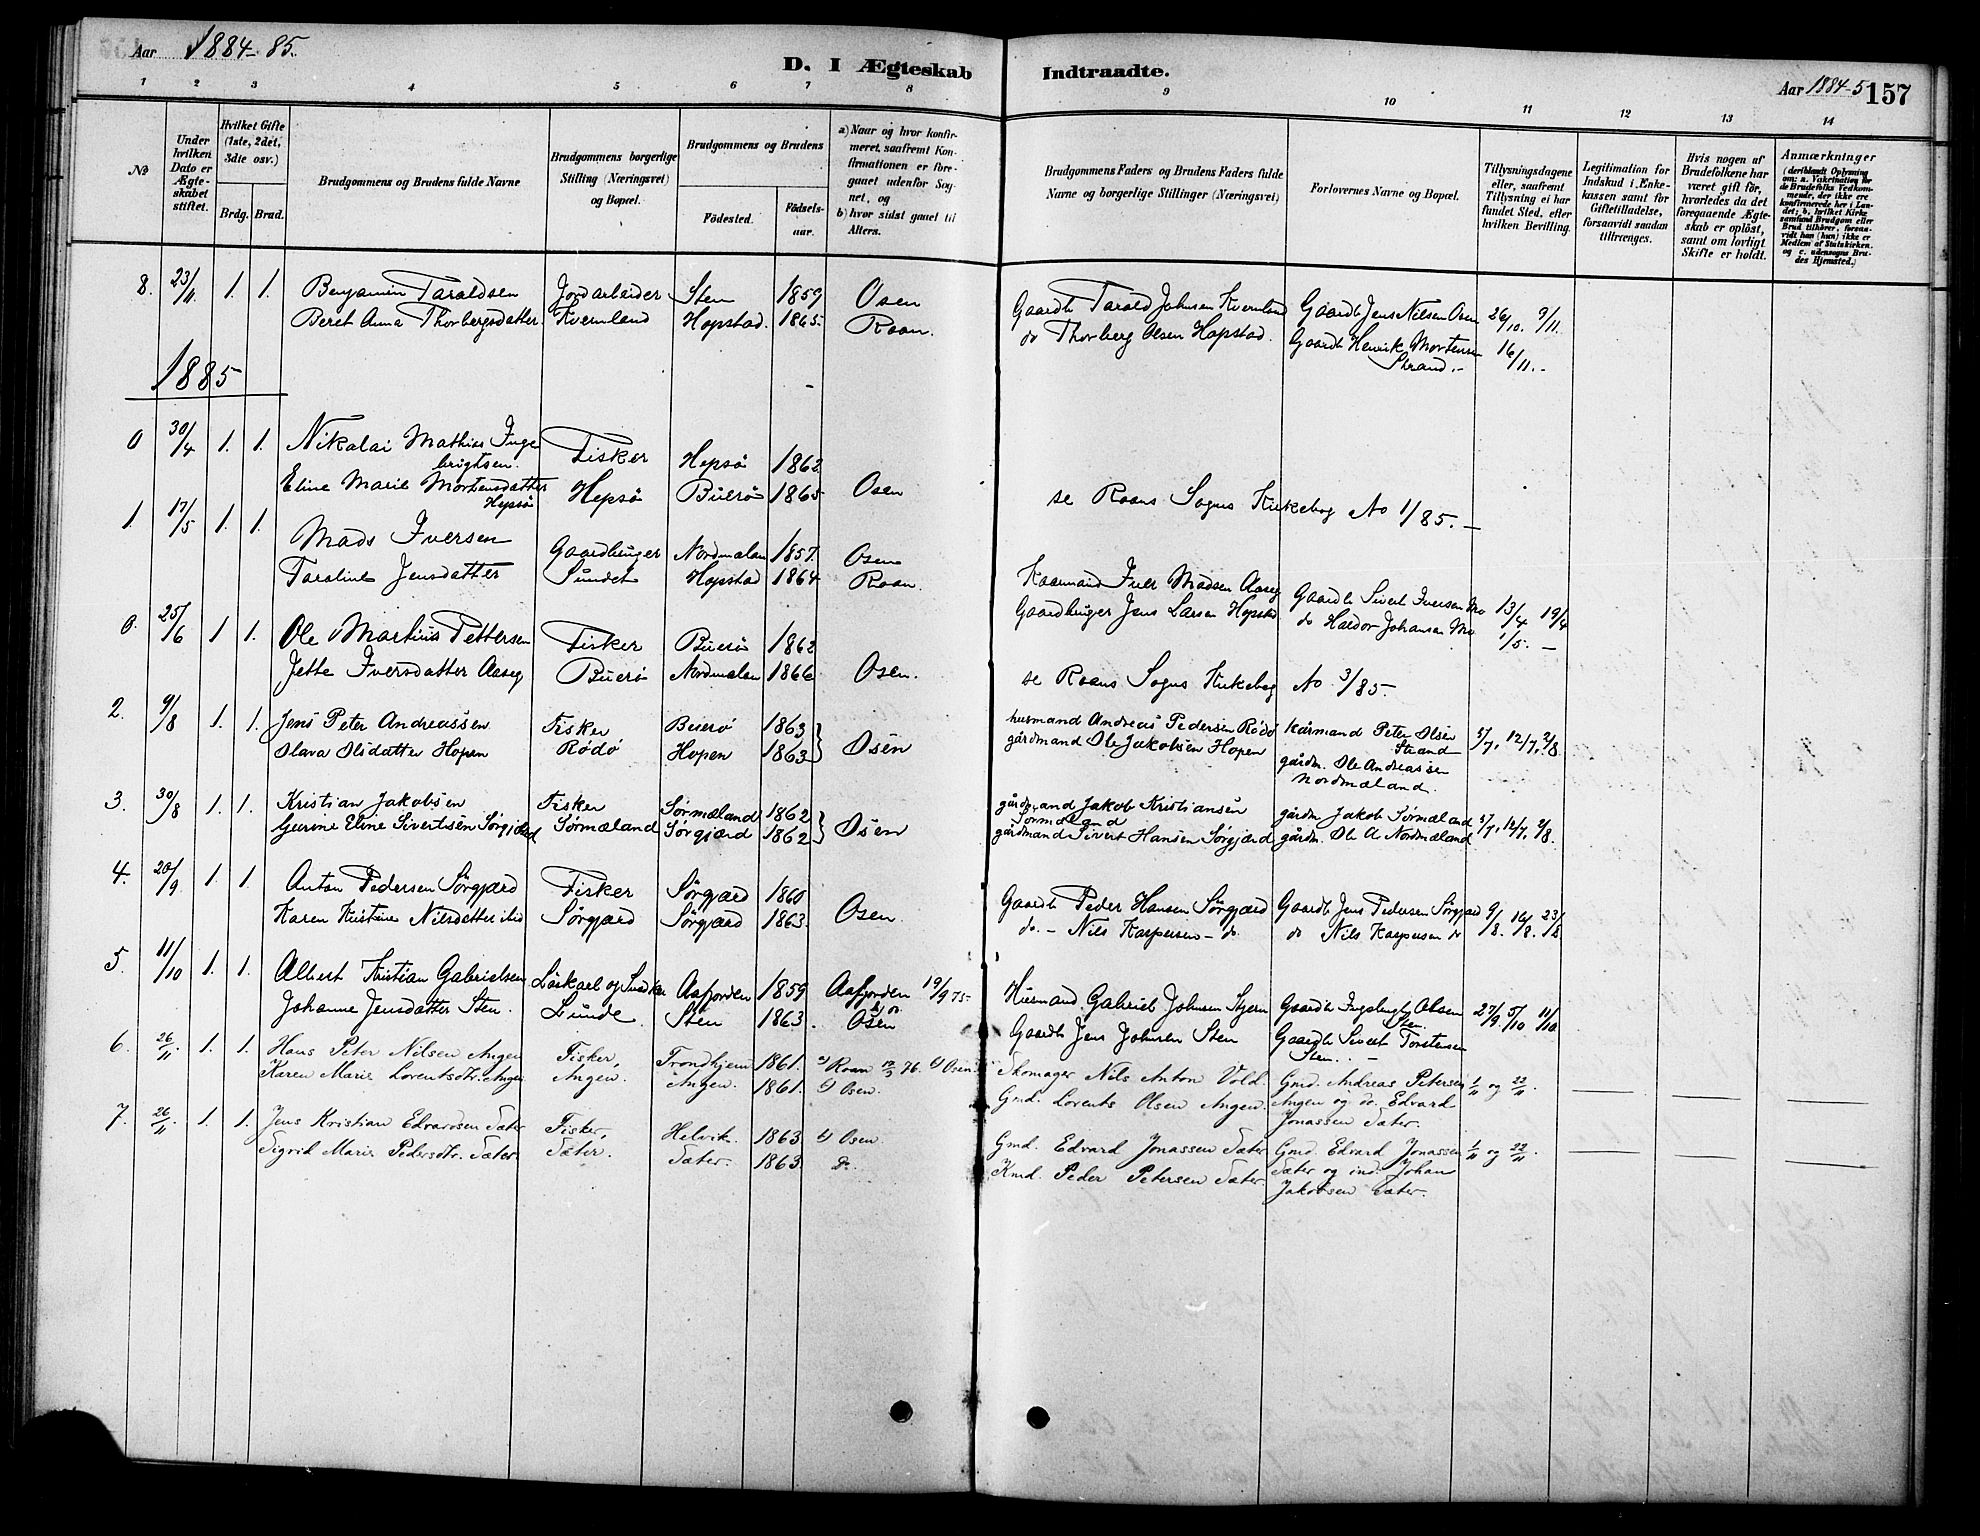 Aar 1884-85.
D. I Ægteskab Indtraadte.
Aar 1884-5 157
1 2 3 4 5 6 7 8 9 10 11 12 13 14
No
Under hvilken Dato er Ægteskabet stiftet.
Hvilket Gifte (1ste, 2det, 3die osv.)
Brdg. Brud.
Brudgommens og Brudens fulde Navne
Brudgommens borgerlige Stilling (Næringsvei) og Bopæl.
Brudgommens og Brudens
Fødested. Fødselsaar.
a) Naar og hvor konfirmeret, saafremt Konfirmationen er foregaaet udenfor Sognet, og
b) hvor sidst gaaet til Alters.
Brudgommens Faders og Brudens Faders fulde Navne og borgerlige Stillinger (Næringsvei)
Forlovernes Navne og Bopæl.
Tillysningsdagene eller, saafremt Tillysning ei har fundet Sted, efter hvilken Bevilling.
Legitimation for Indskud i Enkekassen samt for Giftetilladelse, forsaavidt saadan tiltrænges.
Hvis nogen af Brudefolkene har været gift før, hvorledes da det foregaaende Ægteskab er opløst, samt om lovligt Skifte er holdt.
Anmærkninger (deriblandt Oplysning om: a. Vakcination for de Brudefolks Vedkommende, der ikke ere konfirmerede her i Landet; b. hvilket Kirkesamfund Brudgom eller Brud tilhører, forsaavidt han (hun) ikke er Medlem af Statskirken, og c. udensogns Brudes Hjemsted.)
8. 23/11 1. 1. Benjamin Taraldsen Jordarbeider Sten 1859 Osen Gaardb Tarald Johnsen Kvernland Gaardb Jens Nilsen Osen 26/10. 9/11.
Beret Anna Thorbergsdatter. Kvernland Hopstad. 1865. Roan. do Thorberg Olsen Hopstad. Gaardb Henrik Mortensen Strand.- 16/11.-
1885
0 30/4 1. 1. Nikolai Mathias Ingebrigtsen. Fisker Hepsø 1862
Eline Marie Mortensdatter Hepsø Hepsø Buerø 1865 Osen se Roans Sogns Kirkebog No 1/85.-
1. 17/5 1. 1. Mads Iversen Gaardbruger Nordmælan 1857. Osen Kaarmand Iver Madsen Aaseg Gaardb Sivert Iversen Mo 13/4 19/4
Taraline Jensdatter Sundet Hopstad 1864 Roan. Gaardbruger Jens Larsen Hopstad do Haldor Johansen Mo 1/5. -
0. 25/6 1 1. Ole Martius Pettersen Fisker Buerø 1862
Jette Iversdatter Aaseg Buerø Nordmælan 1866 Osen. se Roans Sogns Kirkebog No 3/85-
2. 9/8 1. 1. Jens Peter Andreassen Fisker Buerø 1863 husmand Andreas Pedersen Rødø Kårmand Peter Olsen Strand 5/7, 12/7, 2/8.
Olava Olsdatter Hopen Rødø Hopen 1863 Osen gårdmand Ole Jakobsen Hopen gårdm. Ole Andreassen Nordmæland.
3. 30/8 1. 1. Kristian Jakobsen Fisker Sørmæland 1862 gårdmand Jakob Kristiansen Sørmæland gårdm. Jakob Sørmæland 5/7, 12/7, 2/8.
Gurine Eline Sivertsen Sørgjærd Sørmæland Sørgjærd 1862 Osen gårdmand Sivert Hansen Sørgjærd gårdm. Ole A Nordmæland
4. 20/9 1. 1. Anton Pedersen Sørgjærd Fisker Sørgjærd 1860 Gaardb Peder Hansen Sørgjærd Gaardb Jens Pedersen Sørgjærd 9/8. 16/8. 23/8
Karen Kristine Nilsdatter ibid Sørgjærd Sørgjærd 1863. Osen. do. - Nils Kaspersen - do do Nils Kaspersen do
5. 11/10 1. 1. Albert Kristian Gabrielsen Løskarl og Snedker Aafjorden 1859 Aafjorden 19/9 75- Husmand Gabriel Johnsen Stjern Gaardb Ingebrigt Olsen Sten. 27/9. 5/10 11/10
Johanne Jensdatter Sten. Lunde. Sten 1863. Osen Gaardb Jens Johnsen Sten Gaardb Sivert Torstensen Sten. -
6. 26/11. 1. 1. Hans Peter Nilsen Angen Fisker, Trondhjem 1861. a) Roan 17/9 76. b) Osen. Skomager Nils Anton Vold. Gmd. Andreas Petersen 1/11 og 22/11.
Karen Marie Lorentsdtr. Angen Angen. Angen. 1861. b) Osen. Gmd. Lorents Olsen Angen. Angen og do. Edvard Jonassen Sæter.
7. 26/11. 1. 1. Jens Kristian Edvardsen Sæter Fisker, Helvik. 1863 b) Osen. Gmd. Edvard Jonassen Sæter Gmd. Edvard Jonassen 1/11 og 22/11.
Sigrid Marie Pedersdtr. Sæter. Sæter. Sæter. 1863. do. Kmd. Peder Petersen Sæter. Sæter og ind. Johan Jakobsen Sæter.